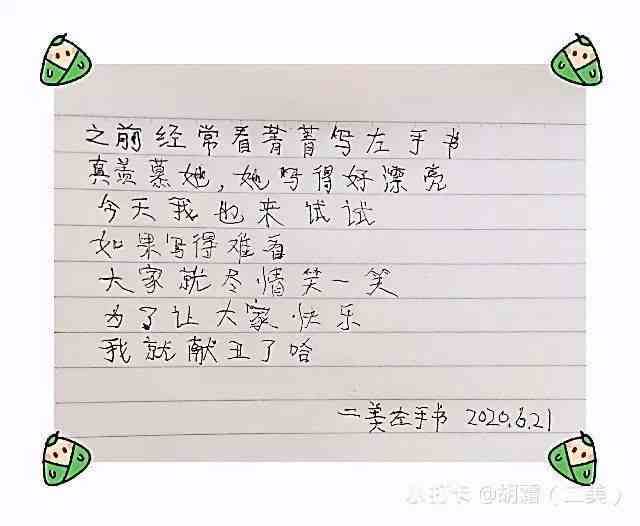 之前经常看菁菁写左手书
真羡慕她,她写得好漂亮
今天我也来试试
如果写得难看
大家就尽情笑一笑
为了让大家快乐
我就献丑了哈
二美左手书 2020.6.21
小打卡@胡霜（二美）